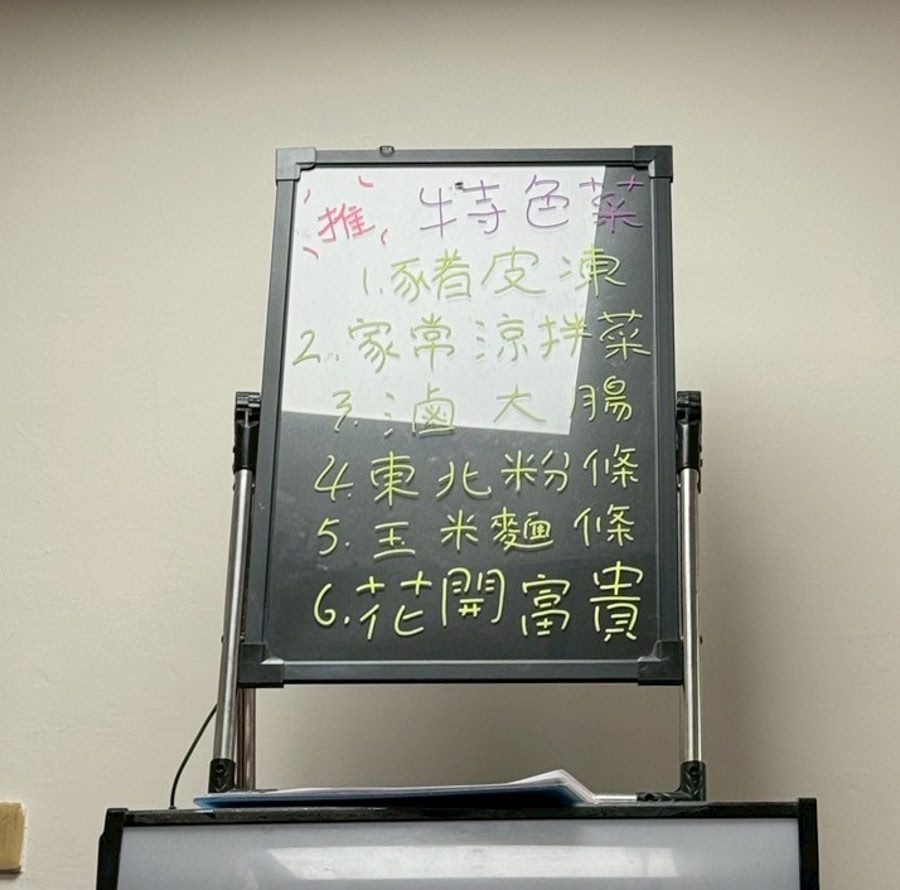 推 特色菜
1.豬皮凍
2.家常涼拌菜
3.滷大腸
4.東北粉條
5.玉米麵條
6.花開富貴